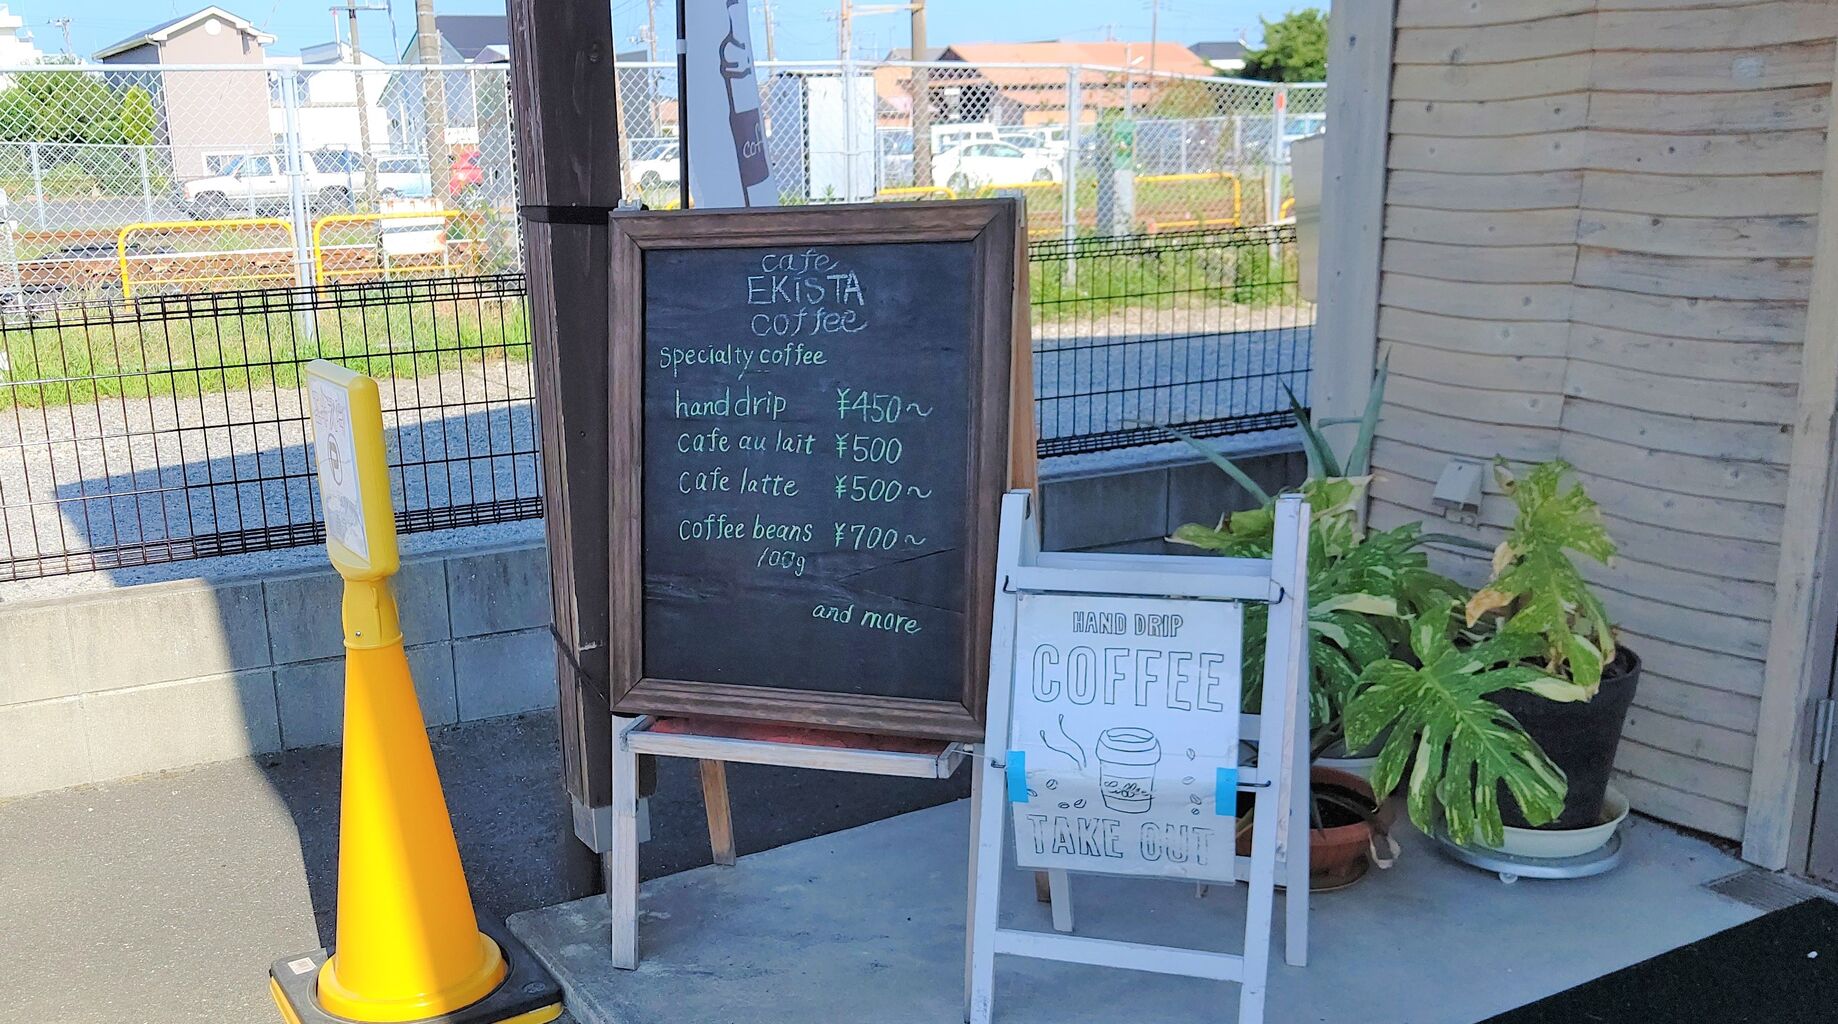 cafe
EKISTA
coffee
specialty coffee
hand drip ¥450~
cafe au lait ¥500
cafe latte ¥500~
coffee beans ¥700~
100g
and more
HAND DRIP
COFFEE
Coffee
TAKE OUT